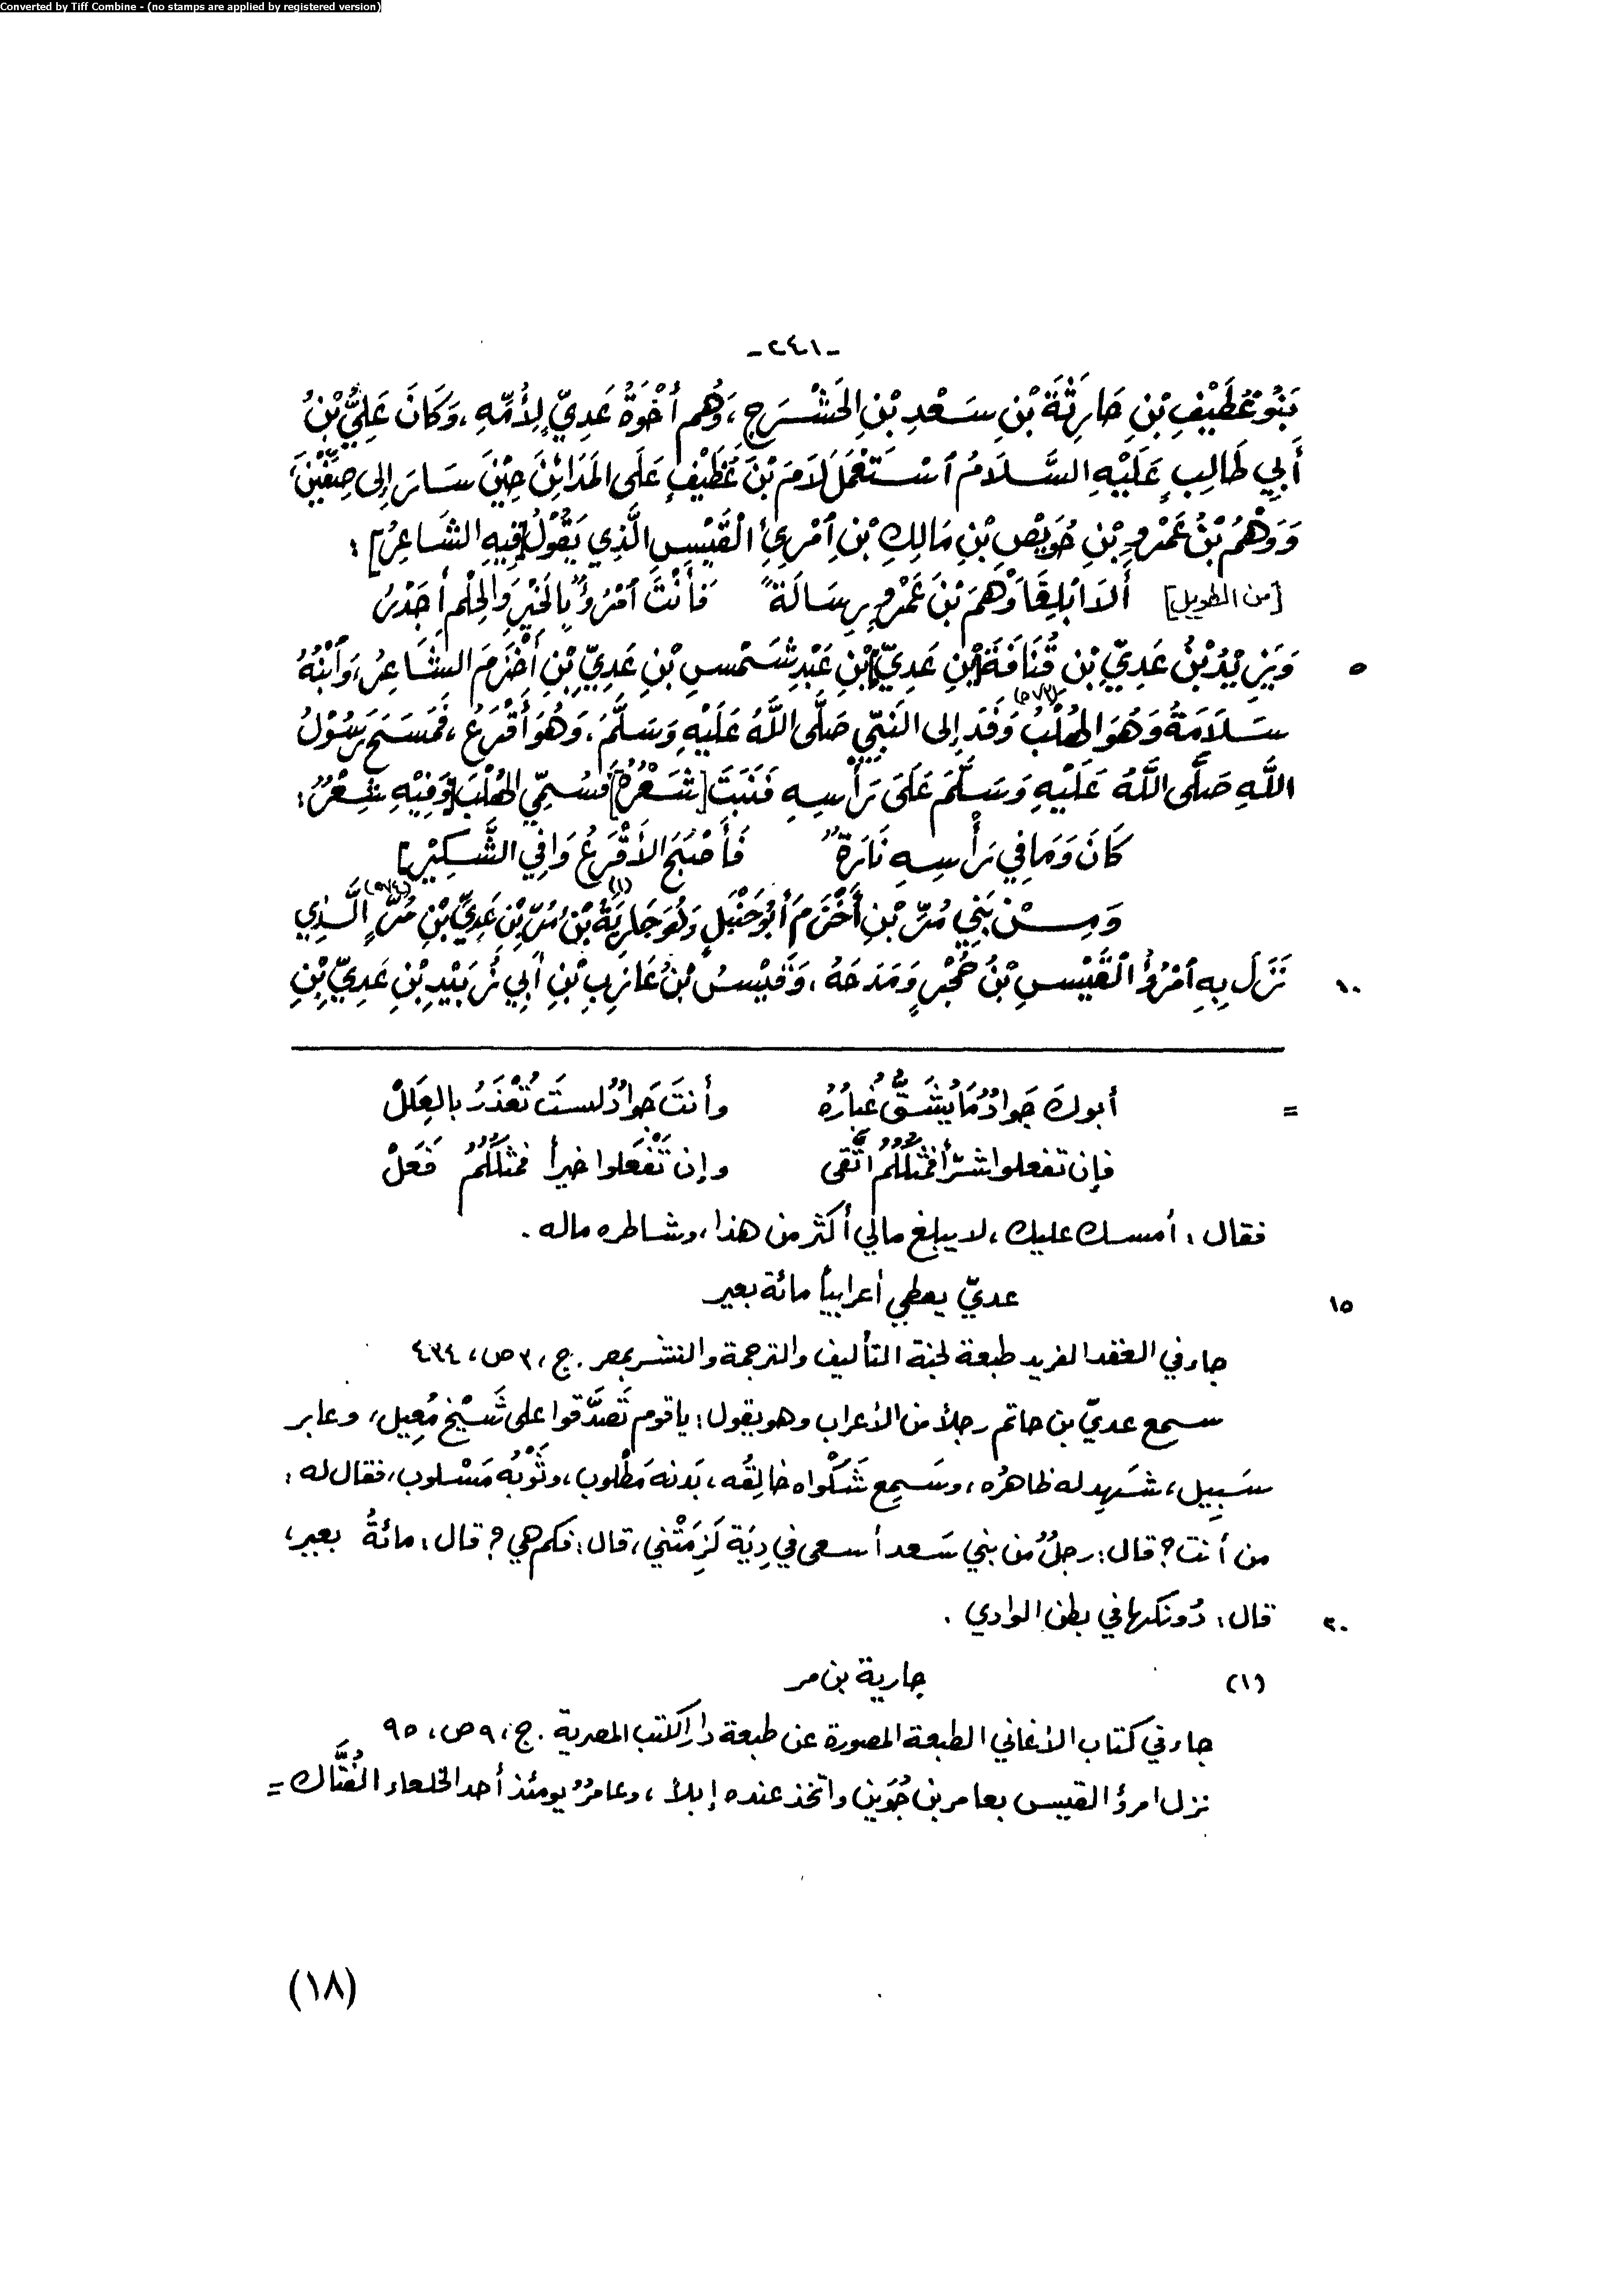 Converted by Tiff Combine - (no stamps are applied by registered version)
-٢٤١-
بَنُوْ غُطَيْفِ بْنِ حَارِثَةَ بْنِ سَعْدِ بْنِ الحَشْرَجِ، وَهُم أُخْوَةُ عَدِيٍّ لِأُمِّهِ، وَكَانَ عَلِيُّ بْنُ
أَبِي طَالِبٍ عَلَيْهِ السَّلَامُ ٱسْتَعْمَلَ لَامَ بْنَ غُطَيْفٍ عَلَى المَدَائِنَ حِيْنَ سَارَ إِلى صِفِّيْنَ،
وَوَهْمُ بْنُ عَمْرِو بْنِ حُوَيْصِ بْنِ مَالِكِ بْنِ ٱمْرِئِ القَيْسِ الَّذِي يَقُوْلُ [فِيهِ الشَاعِرُ]:
[من الطويل] أَلَا ٱبْلِغَا وَهْمَ بْنَ عَمْروٍ رِسَالَةً فَأَنْتَ ٱمْرُؤٌ بِالخَيْرِ وَالحِلْمِ أَجْدَرُ
٥ وَيَزِيْدُ بْنُ عَدِيِّ بْنِ قُنَافَةَ [بْنِ عَدِيِّ] بْنِ عَبْدِ شَمْسِ بْنِ عَدِيِّ بْنِ أَخْزَمَ الشَاعِرُ، وَٱبْنُهُ
سَلَامَةُ وَهُوَ الهُلْبُ (٥٧٣) وَفَدَ إِلى النَبِّيِ صَلَّى اللَّهُ عَلَيْهِ وَسَلَّمَ، وَهُوَ أَقْرَعُ، فَمَسَحَ رَسُوْلُ
اللَّهِ صَلَّى اللَّهُ عَلَيْهِ وَسَلَّمَ عَلَى رَأسِهِ فَنَبَتَ [شَعْرُهُ] فَسُمِّيَ الهُلْبَ [وَفِيْهِ شِعْرٌ:
كَانَ وَمَا فِي رَأسِهِ نَارَةٌ فَأَصْبَحَ الأَقْرَعُ وَافِي الشَّكِيْرِ]
وَمِنْ بَنِي مُرِّ بْنِ أَخْزَمَ أَبُو حَنْبَلٍ وَهُوَ جَارِيَةُ (١) بْنُ مُرِّ بْنِ عَدِيِّ بْنِ مُرٍّ (٥٧٤) الَّذِي
١٠ نَزَلَ بِهِ ٱمْرُؤُ القَيْسِ بْنُ حُجْرٍ وَمَدَحَهُ، وَقَيْسُ بْنُ عَازِبِ بْنِ أَبِي زُبَيْدِ بْنِ عَدِيِّ بْنِ
= أبوكَ جَوادٌ مَا يُشَقُّ غُبارُهُ وأنتَ جَوادٌ لستَ تُعْذَرُ بالعِلَلْ
فإن تفعلوا شرّاً فمثلُكُم اتَّقى وإن تَفْعَلوا خيراً فمثلُكُمُ فَعَلْ
فقال: أمسك عليك، لا يبلغ مالي أكثر من هذا، وشاطره ماله.
١٥ عديّ يعطي أعرابياً مائة بعير
جاء في العقد الفريد طبعة لجنة التأليف والترجمة والنشر بمصر. ج، ٣ ص، ٤٣٤
سمع عديّ بن حاتم رجلاً من الأعراب وهو يقول: يا قوم تَصدَّقوا على شَيْخٍ مُعِيل، وعابر
سَبِيل، شَهِد له ظاهرُه، وسَمِع شَكْواه خالِقُه، بَدنه مَطْلوب، وثَوْبُه مَسْلوب، فقال له:
من أنت؟ قال: رجلٌ من بني سَعد أسعى في دِيَة لَزِمَتْني، قال: فكم هي؟ قال: مائةُ بعير،
٢٠ قال: دُونَكها في بطن الوادي.
(١) جارية بن مر
جاء في كتاب الأغاني الطبعة المصورة عن طبعة دار الكتب المصرية. ج، ٩ ص، ٩٥
نزل امرؤ القيس بعامر بن جُوَين واتّخذ عنده إبلاً، وعامرٌ يومئذ أحد الخلعاء الفُتَّاك =
(١٨)